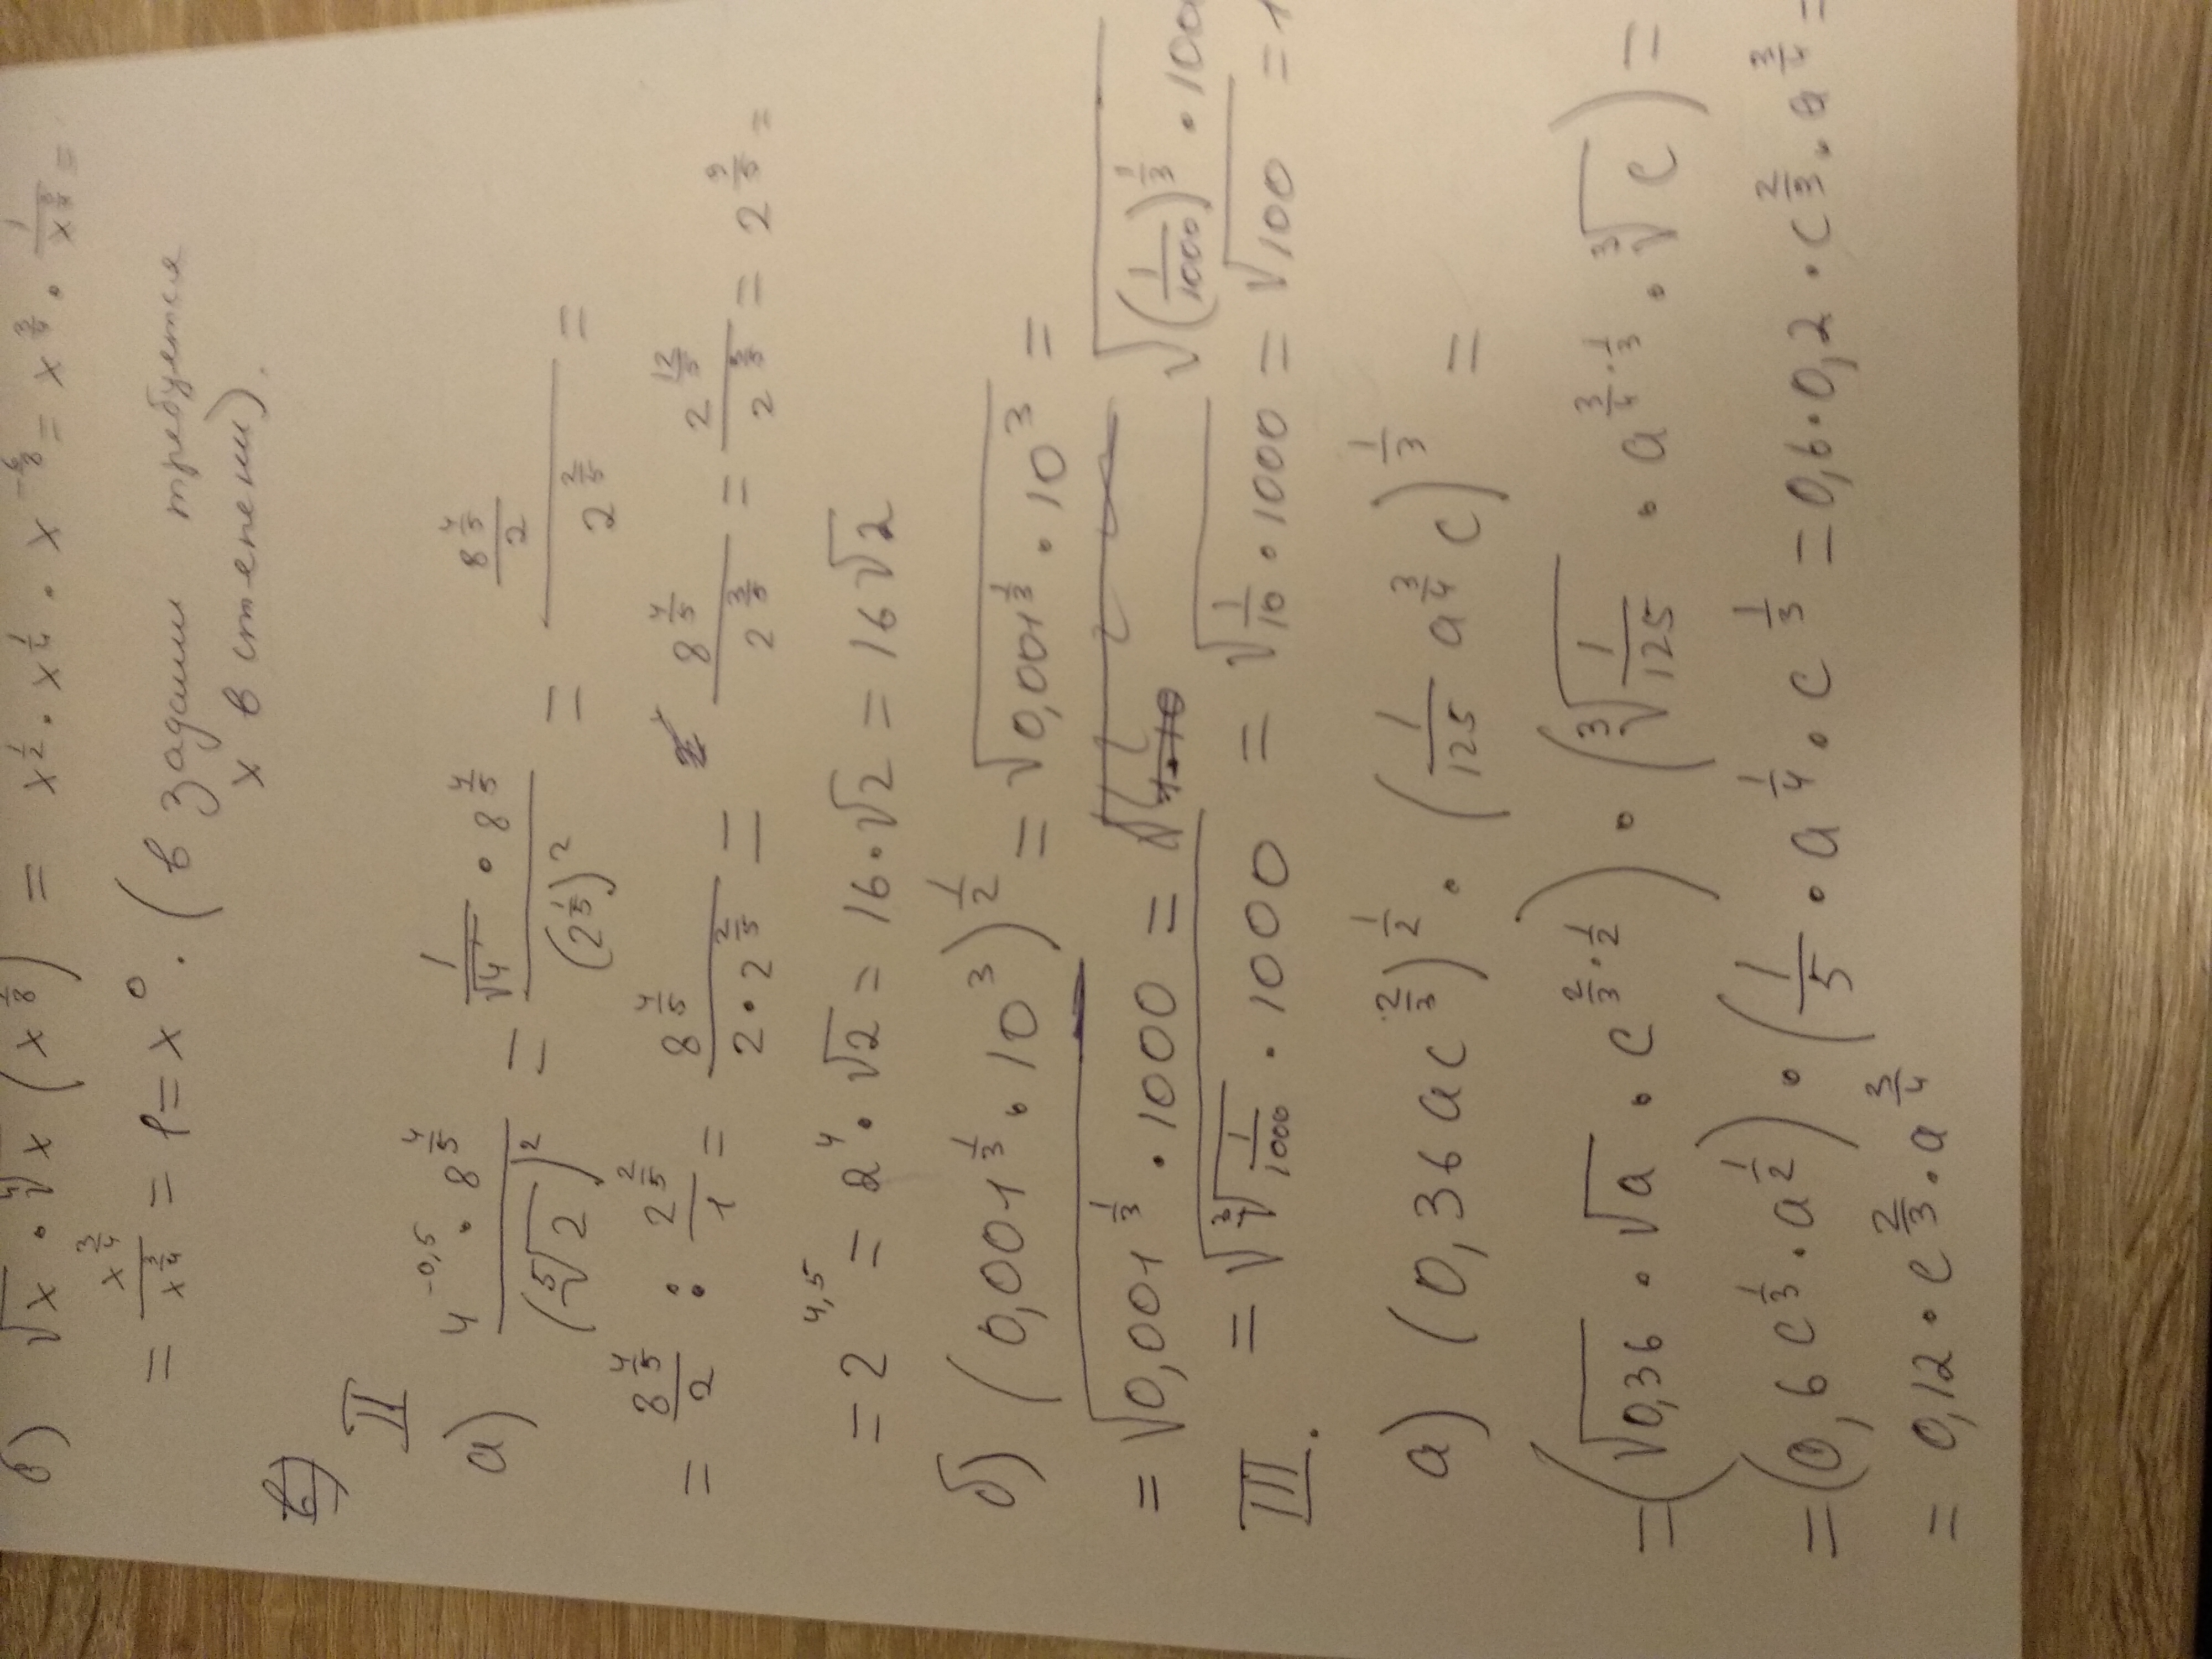 б) √x · ∜x (x^(1/8)) = x^(1/2) · x^(1/4) · x^(-6/8) = x^(3/4) · 1/x^(3/4) =
= x^(3/4)/x^(3/4) = 1 = x^0. (в задании требуется
x в степени).
в)
II
а) (4^(-0,5) · 8^(4/5))/(⁵√2)^2 = (1/√4 · 8^(4/5))/(2^(1/5))^2 = (8^(4/5)/2)/2^(2/5) =
= 8^(4/5)/2 : 2^(2/5)/1 = 8^(4/5)/(2·2^(2/5)) = 8^(4/5)/2^(3/5) = 2^(12/5)/2^(3/5) = 2^(9/5) =
= 2^(4,5) = 2^4 · √2 = 16·√2 = 16√2
б) (0,001^(1/3) · 10^3)^(1/2) = √(0,001^(1/3) · 10^3) =
= √(0,001^(1/3) · 1000) = √((1/1000)^(1/3) · 100
= √(³√(1/1000) · 1000) = √(1/10 · 1000) = √100 = 1
III.
а) (0,36ac^(2/3))^(1/2) · (1/125 a^(3/4) c)^(1/3) =
= (√0,36 · √a · c^(2/3 · 1/2)) · (³√(1/125) · a^(3/4 · 1/3) · ³√c) =
= (0,6c^(1/3) · a^(1/2)) · (1/5 · a^(1/4) · c^(1/3) = 0,6·0,2·c^(2/3) · a^(3/4) =
= 0,12 · c^(2/3) · a^(3/4)